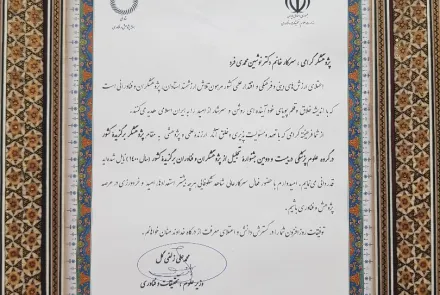 پژوهشگر گرامی، سرکار خانم دکتر نوشین محمدی فرد
اعتلای ارزش‌های دینی و فرهنگی و اقتدار علمی کشور مرهون تلاش ارزشمند استادان، پژوهشگران و فناورانی است
که با اندیشه خلاق و قلم پویای خود آینده‌ای روشن و سرشار از امید را به ایران اسلامی هدیه می‌کنند.
از شما فرهیخته گرامی که با تعهد و مسئولیت پذیری و خلق آثار ارزنده علمی و پژوهشی به مقام پژوهشگر برگزیده کشور
در گروه علوم پزشکی در بیست و دومین جشنواره تجلیل از پژوهشگران و فناوران برگزیده کشور (سال ۱۴۰۰) نایل شده‌اید
قدردانی می‌نمایم. امیدوارم با حضور فعال سرکارعالی شاهد شکوفایی هرچه بیشتر استعدادها، امید و خرورزی در عرصه
پژوهش و فناوری باشیم.
توفیقات روزافزون شما را در گسترش دانش و اعتلای معرفت از درگاه خداوند منان خواهانم.
محمدعلی زلفی گل
وزیر علوم، تحقیقات و فناوری